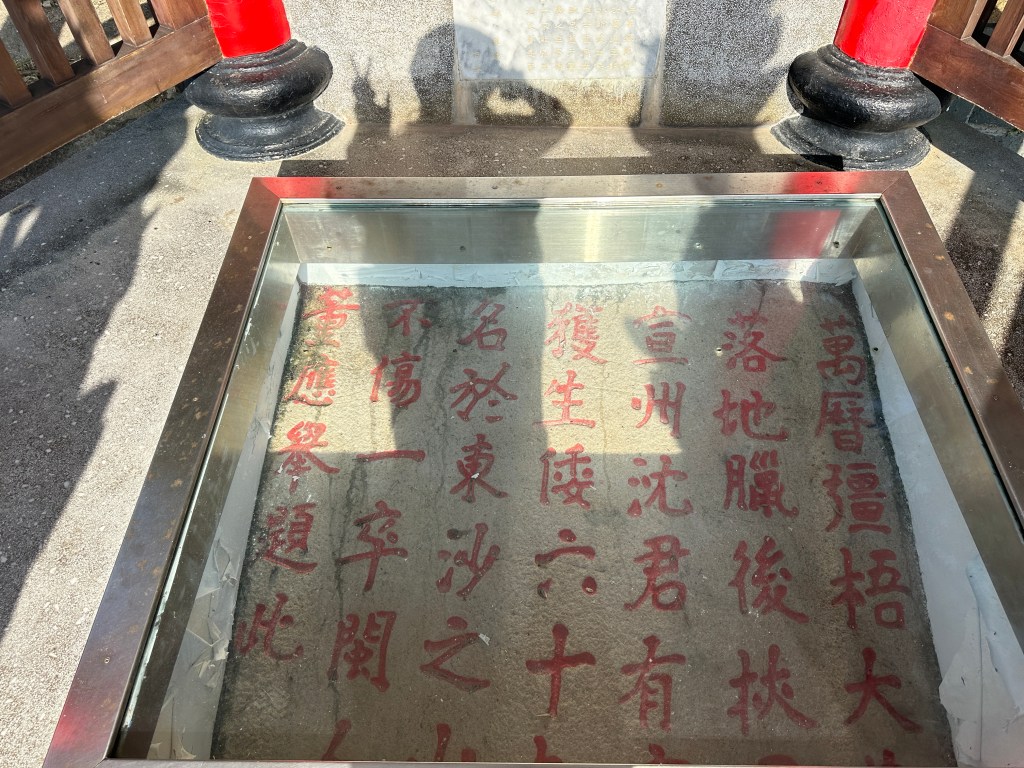 萬曆彊梧大
落地臘後挾
宣州沈君有
獲生倭六十
名於東沙之山
不傷一卒閩人
董應舉題此